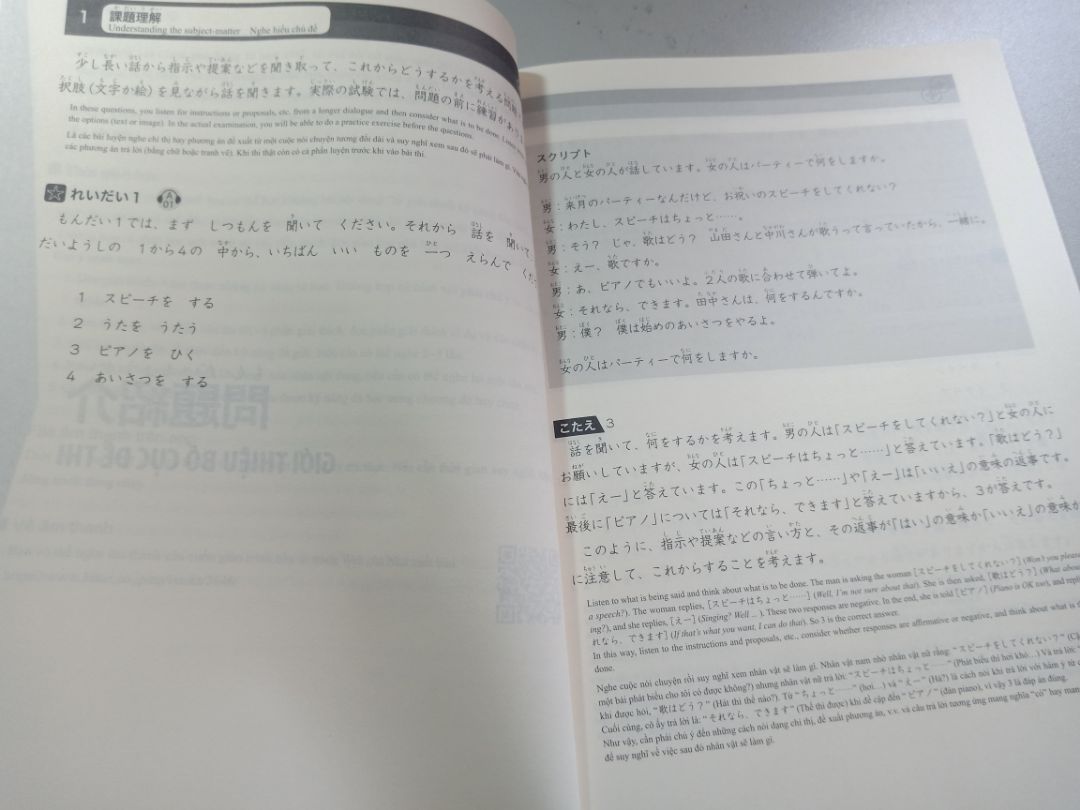 1 課題理解
Understanding the subject-matter Nghe hiểu chủ đề
少し長い話から指示や提案などを聞き取って、これからどうするかを考える
択肢（文字か絵）を見ながら話を聞きます。実際の試験では、問題の前に練習があ
In these questions, you listen for instructions or proposals, etc. from a longer dialogue and then consider what is to be done.
the options (text or image). In the actual examination, you will be able to do a practice exercise before the questions.
Là các bài luyện nghe chỉ thị hay phương án đề xuất từ một cuộc nói chuyện tương đối dài và suy nghĩ xem sau đó sẽ phải làm gì.
các phương án trả lời (bằng chữ hoặc tranh vẽ). Khi thi thật còn có cả phần luyện trước khi vào bài thi.
れいだい1 A 01
もんだい1では、まず しつもんを 聞いて ください。それから 話を 聞いて、
だいようしの 1から4の 中から、いちばん いい ものを 一つ えらんで くだ
1 スピーチを する
2 うたを うたう
3 ピアノを ひく
4 あいさつを する
スクリプト
男の人と女の人が話しています。女の人はパーティーで何をしますか。
男：来月のパーティーなんだけど、お祝いのスピーチをしてくれない？
女：わたし、スピーチはちょっと……。
男：そう？ じゃ、歌はどう？ 山田さんと中川さんが歌うって言っていたから、一緒に。
女：えー、歌ですか。
男：あ、ピアノでもいいよ。2人の歌に合わせて弾いてよ。
女：それなら、できます。田中さんは、何をするんですか。
男：僕？ 僕は始めのあいさつをやるよ。
女の人はパーティーで何をしますか。
こたえ 3
話を聞いて、何をするかを考えます。男の人は「スピーチをしてくれない？」と女の人に
お願いしていますが、女の人は「スピーチはちょっと……」と答えています。「歌はどう？」
には「えー」と答えています。この「ちょっと……」や「えー」は「いいえ」の意味の返事です。
最後に「ピアノ」については「それなら、できます」と答えていますから、3が答えです。
このように、指示や提案などの言い方と、その返事が「はい」の意味か「いいえ」の意味か
に注意して、これからすることを考えます。
Listen to what is being said and think about what is to be done. The man is asking the woman [スピーチをしてくれない？] (Won't you please
a speech?). The woman replies, [スピーチはちょっと……] (Well, I'm not sure about that). She is then asked, [歌はどう？] (What about
ing?), and she replies, [えー] (Singing? Well ... ). These two responses are negative. In the end, she is told [ピアノ] (Piano is OK too), and repl
れなら、できます] (If that's what you want, I can do that). So 3 is the correct answer.
In this way, listen to the instructions and proposals, etc., consider whether responses are affirmative or negative, and think about what is
done.
Nghe cuộc nói chuyện rồi suy nghĩ xem nhân vật sẽ làm gì. Nhân vật nam nhờ nhân vật nữ rằng: "スピーチをしてくれない？"
một bài phát biểu cho tôi có được không?) nhưng nhân vật nữ trả lời: "スピーチはちょっと……" (Phát biểu thì hơi khó...) Và trả lời: "
khi được hỏi, "歌はどう？" (Hát thì thế nào?). Từ "ちょっと……" (hơi...) và "えー" (Hả?) là cách nói khi trả lời với hàm ý từ
Cuối cùng, cô ấy trả lời là: "それなら、できます" (Thế thì được) khi đề cập đến "ピアノ" (đàn piano), vì vậy 3 là đáp án đúng.
Như vậy, cần phải chú ý đến những cách nói dạng chỉ thị, đề xuất phương án, v.v. và câu trả lời tương ứng mang nghĩa "có" hay mang
để suy nghĩ về việc sau đó nhân vật sẽ làm gì.